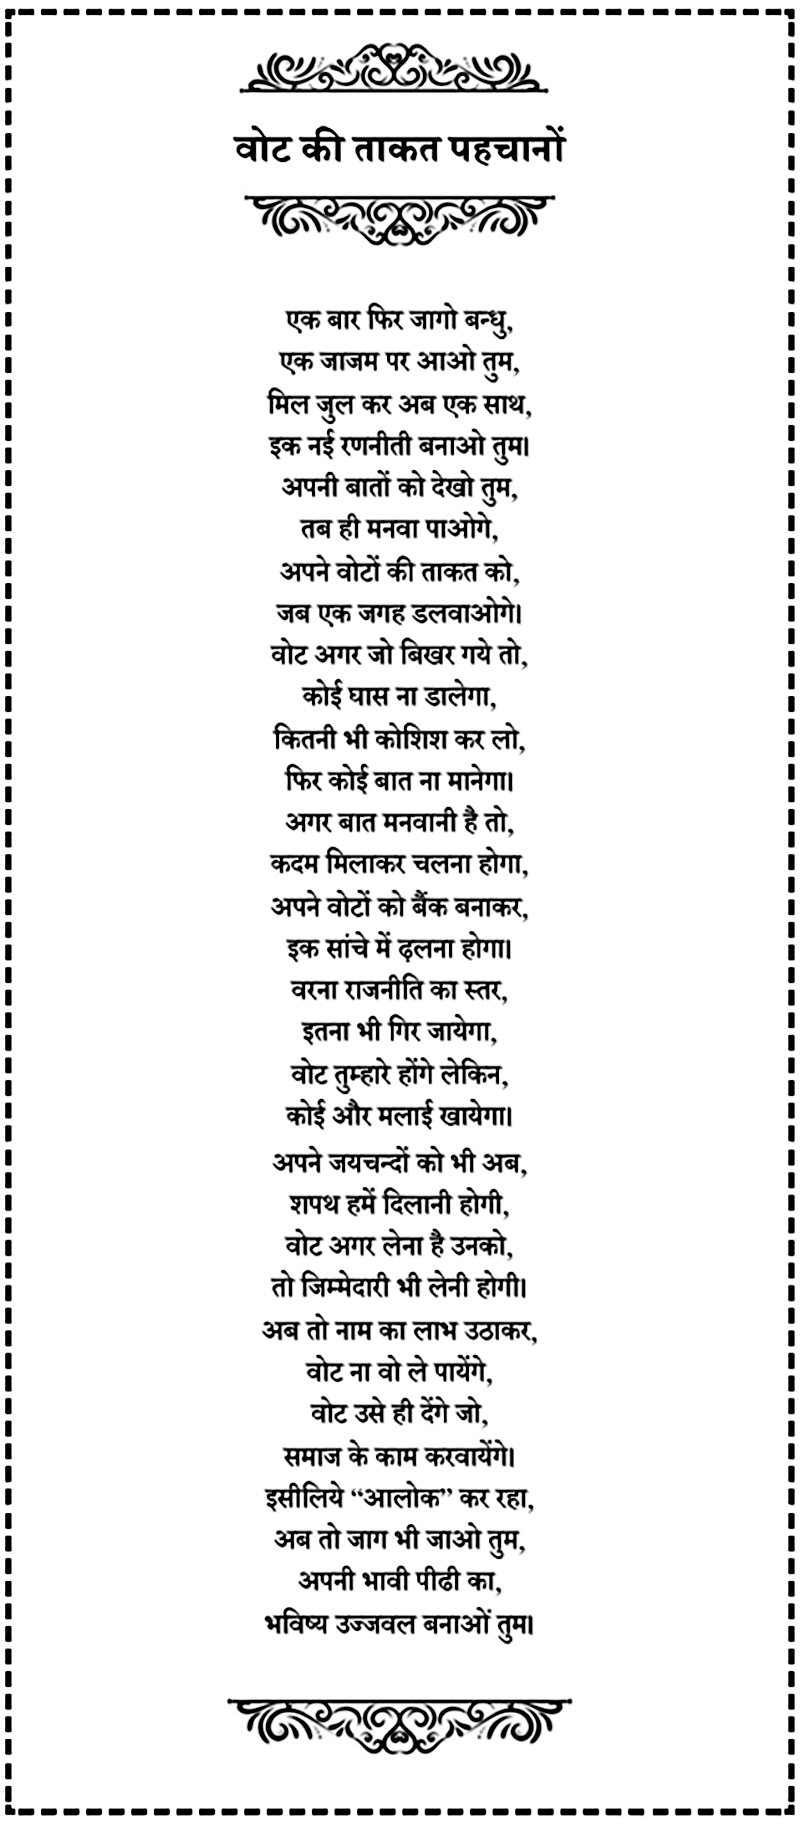 वोट की ताकत पहचानों
एक बार फिर जागो बन्धु,
एक जाजम पर आओ तुम,
मिल जुल कर अब एक साथ,
इक नई रणनीती बनाओ तुम।
अपनी बातों को देखो तुम,
तब ही मनवा पाओगे,
अपने वोटों की ताकत को,
जब एक जगह डलवाओगे।
वोट अगर जो बिखर गये तो,
कोई घास ना डालेगा,
कितनी भी कोशिश कर लो,
फिर कोई बात ना मानेगा।
अगर बात मनवानी है तो,
कदम मिलाकर चलना होगा,
अपने वोटों को बैंक बनाकर,
इक सांचे में ढ़लना होगा।
वरना राजनीति का स्तर,
इतना भी गिर जायेगा,
वोट तुम्हारे होंगे लेकिन,
कोई और मलाई खायेगा।
अपने जयचन्दों को भी अब,
शपथ हमें दिलानी होगी,
वोट अगर लेना है उनको,
तो जिम्मेदारी भी लेनी होगी।
अब तो नाम का लाभ उठाकर,
वोट ना वो ले पायेंगे,
वोट उसे ही देंगे जो,
समाज के काम करवायेंगे।
इसीलिये “आलोक” कर रहा,
अब तो जाग भी जाओ तुम,
अपनी भावी पीढी का,
भविष्य उज्जवल बनाओं तुम।